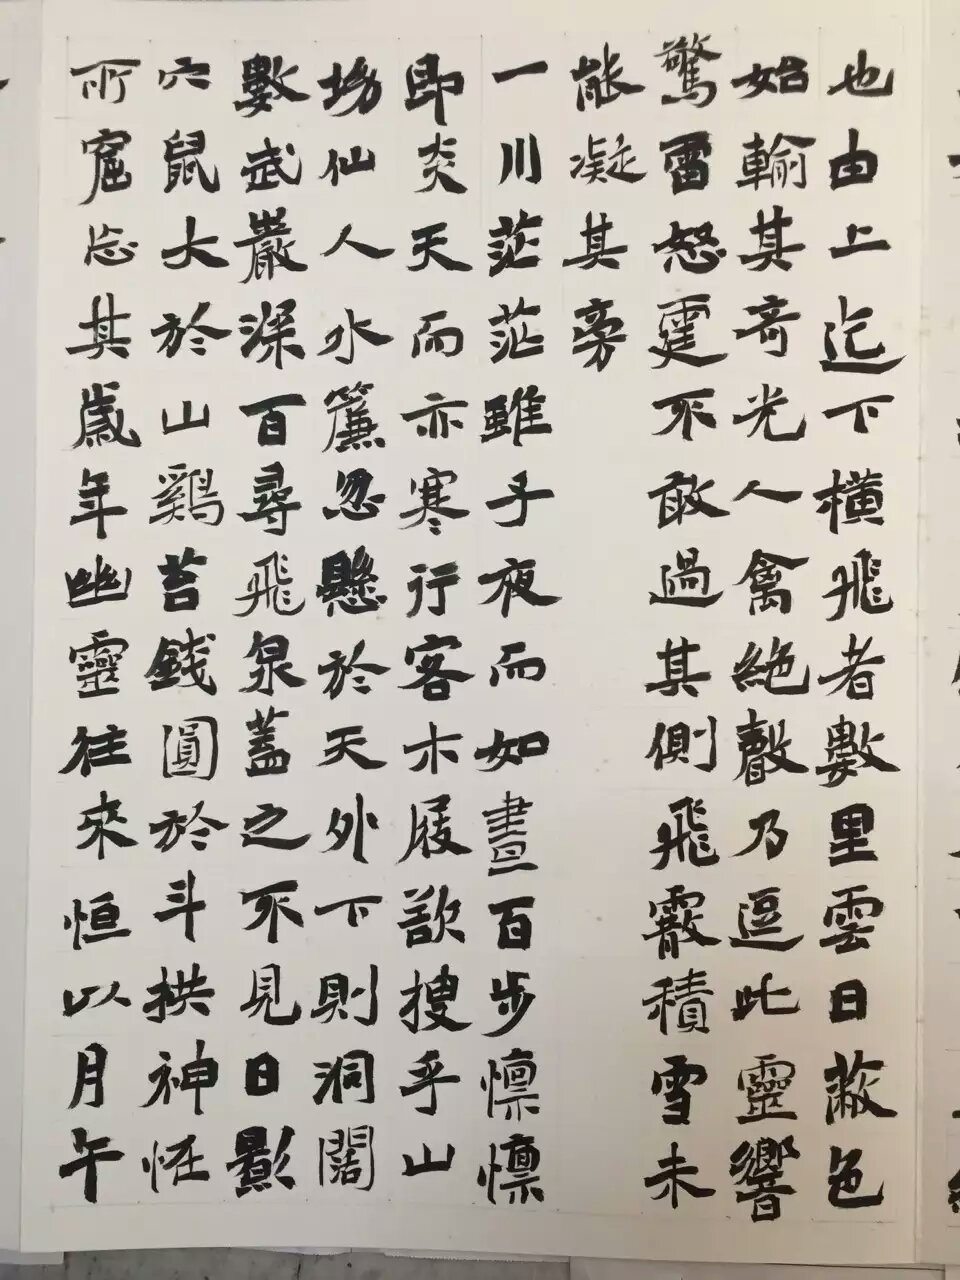 也由上迄下橫飛者數里雲日蔽色
始輸其奇光人禽絕聲乃逗此靈響
驚雷怒霆不敢過其側飛霰積雪未
能凝其旁
一川茫茫雖乎夜而如晝百步懍懍
即炎天而亦寒行客木屐歆搜乎山
坳仙人水簾忽懸於天外下則洞闊
數武巖深百尋飛泉蓋之不見日影
穴鼠大於山鷄苔錢圓於斗拱神怪
所窟忘其歲年幽靈往來恒以月午